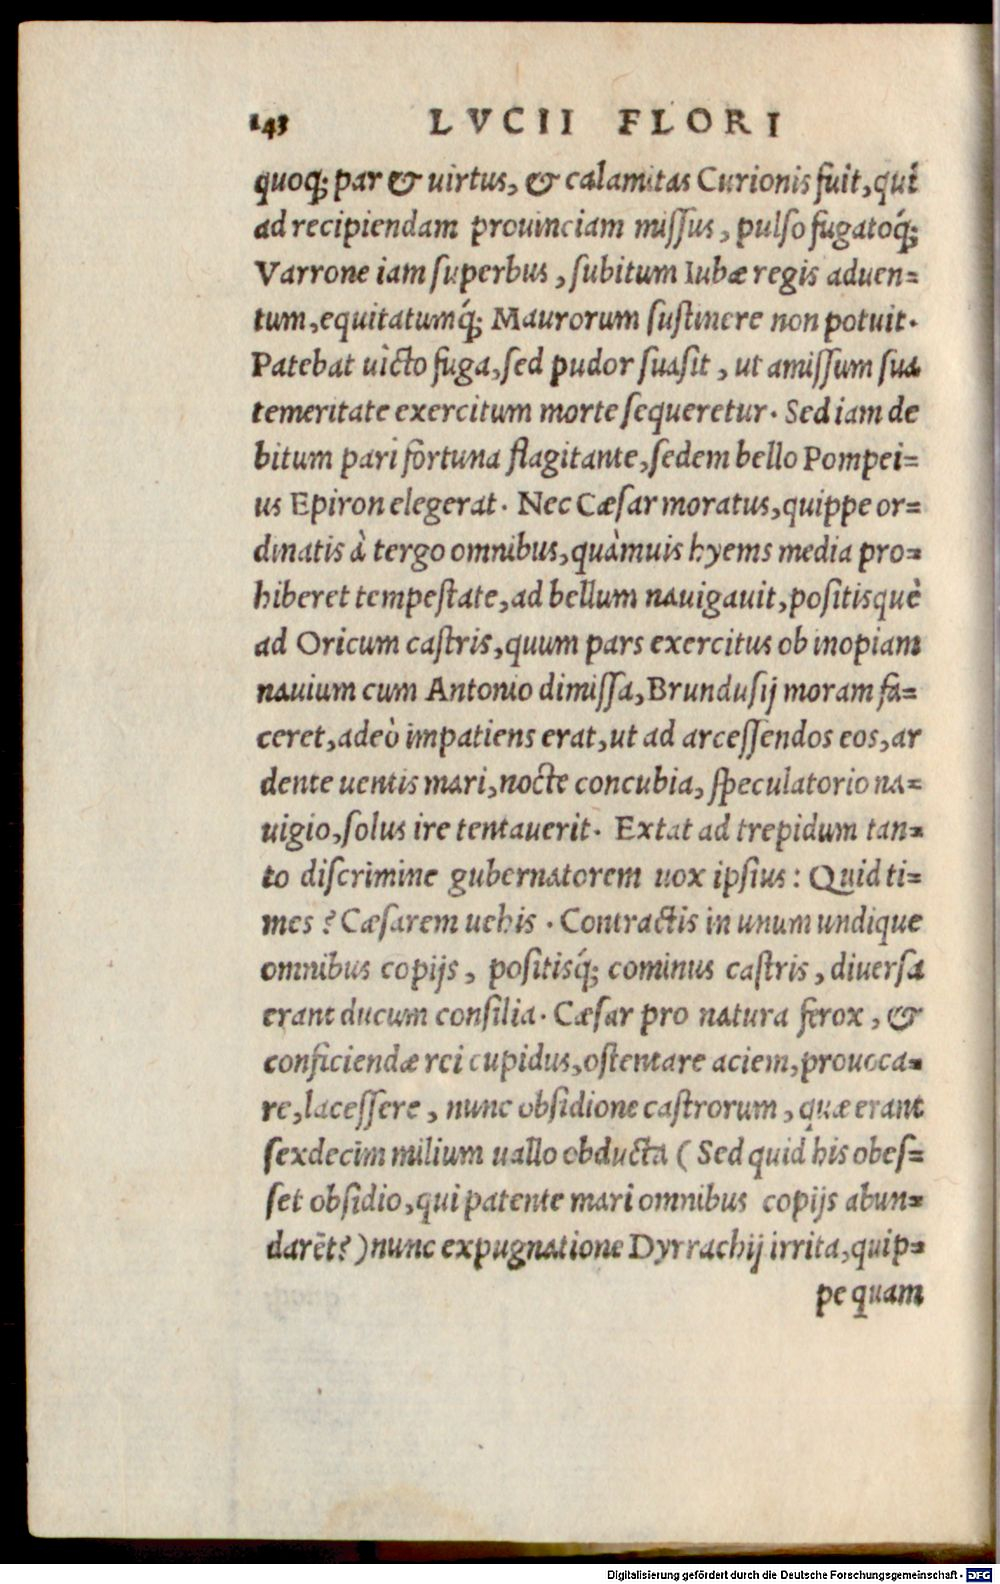 143 LVCII FLORI
quoq; par & uirtus, & calamitas Curionis fuit, qui
ad recipiendam prouinciam missus, pulso fugatoq́;
Varrone iam superbus, subitum Iubæ regis aduen=
tum, equitatumq́; Maurorum sustinere non potuit.
Patebat uìcto fuga, sed pudor suasit, ut amissum sua
temeritate exercitum morte sequeretur. Sed iam de
bitum pari fortuna flagitante, sedem bello Pompei=
us Epiron elegerat. Nec Cæsar moratus, quippe or=
dinatis à tergo omnibus, quàmuis hyems media pro=
hiberet tempestate, ad bellum nauigauit, positisquè
ad Oricum castris, quum pars exercitus ob inopiam
nauium cum Antonio dimissa, Brundusij moram fa=
ceret, adeò impatiens erat, ut ad arcessendos eos, ar
dente uentis mari, nocte concubia, speculatorio na=
uigio, solus ire tentauerit. Extat ad trepidum tan=
to discrimine gubernatorem uox ipsius: Quid ti=
mes? Cæsarem uehis. Contractis in unum undique
omnibus copijs, positisq́; cominus castris, diuersa
erant ducum consilia. Cæsar pro natura ferox, &
conficiendæ rei cupidus, ostentare aciem, prouoca=
re, lacessere, nunc obsidione castrorum, quæ erant
sexdecim milium uallo obducta (Sed quid his obes=
set obsidio, qui patente mari omnibus copijs abun=
darēt?) nunc expugnatione Dyrrachij irrita, quip=
pe quam
Digitalisierung gefördert durch die Deutsche Forschungsgemeinschaft - DFG